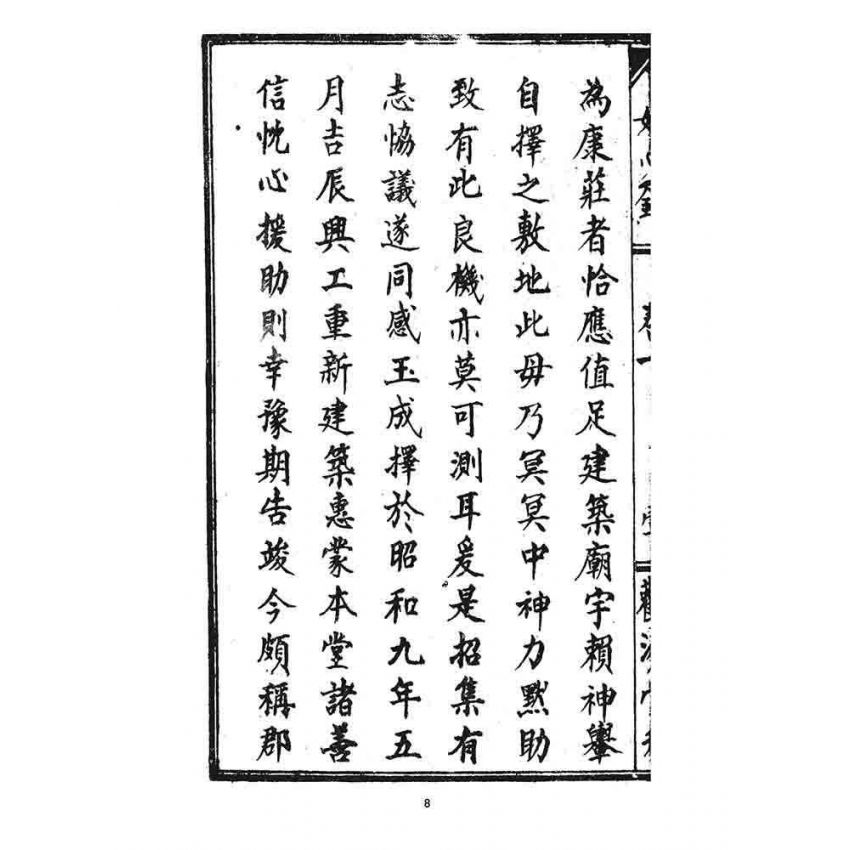 為康莊者恰應值足建築廟宇賴神舉
自擇之敷地此毋乃冥冥中神力默助
致有此良機亦莫可測耳爰是招集有
志協議遂同感玉成擇於昭和九年五
月吉辰興工重新建築惠蒙本堂諸善
信忱心援助則幸豫期告竣今頗稱郡
8